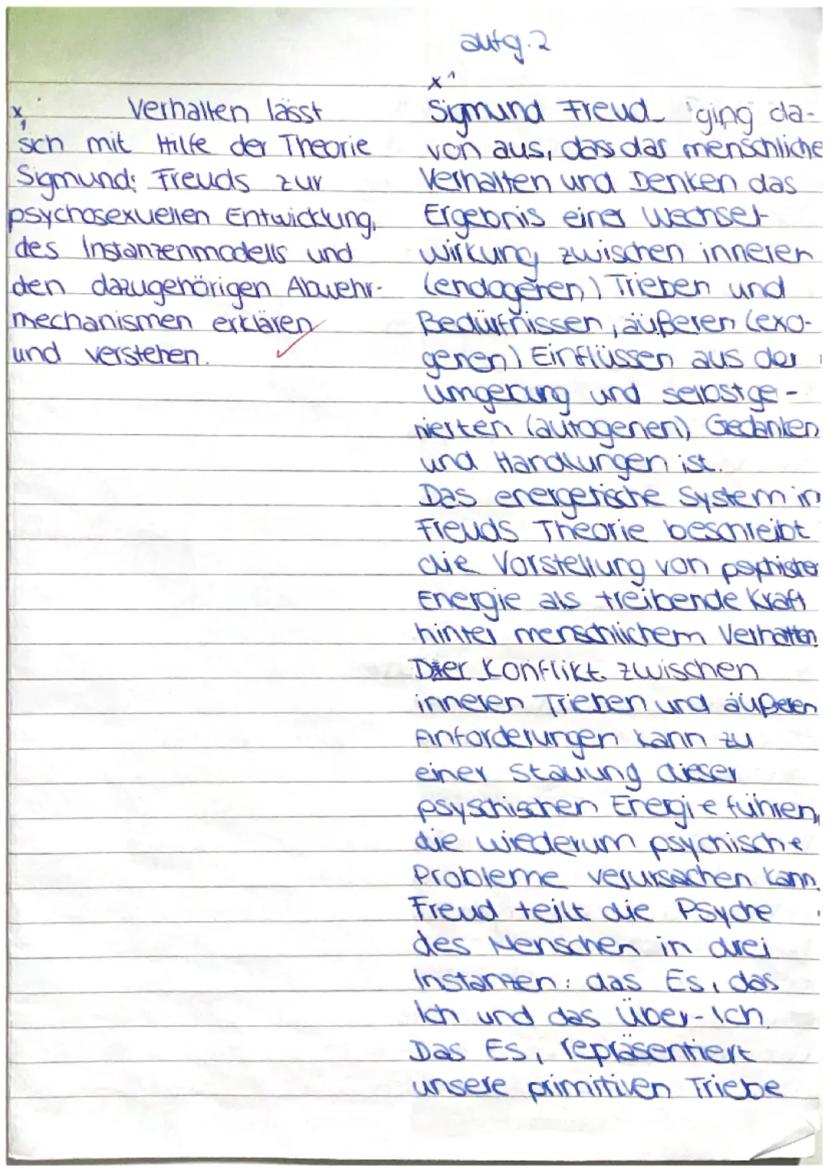 aufg. 2
x
Verhalten lässt
sich mit Hilfe der Theorie
Sigmund Freuds zur
psychosexuellen Entwicklung,
des Instanzenmodells und
den dazugehörigen Abwehr-
mechanismen erklären
und verstehen.
x¹
Sigmund Freud ging da-
von aus, dass das menschliche
Verhalten und Denken das
Ergebnis einer Wechsel-
wirkung zwischen inneren
(endogenen) Trieben und
Bedürfnissen, äußeren (exo-
genen) Einflüssen aus der
Umgebung und selbstge-
nierten (autogenen) Gedanken
und Handlungen ist.
Das energetische System in
Freuds Theorie beschreibt
die Vorstellung von psychister
Energie als treibende Kraft
hinter menschlichem Verhalten
Der Konflikt zwischen
inneren Trieben und äußeren
Anforderungen kann zu
einer Stauung dieser
psyschischen Energie führen,
die wiederum psychische
Probleme verursachen kann.
Freud teilt die Psyche
des Menschen in drei
Instanzen: das Es, das
Ich und das Über-Ich.
Das Es, repräsentiert
unsere primitiven Triebe